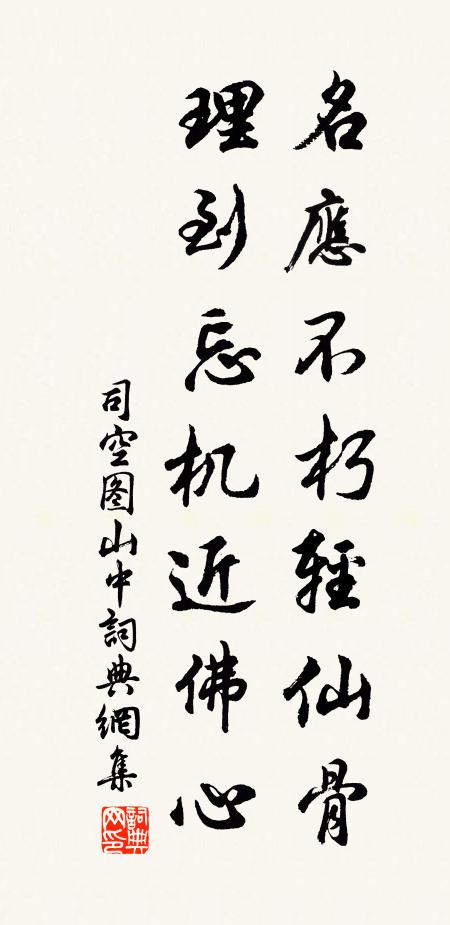 名應不朽輕仙骨
理到忘机近佛心
司空图山中詞典網集
詞典网印